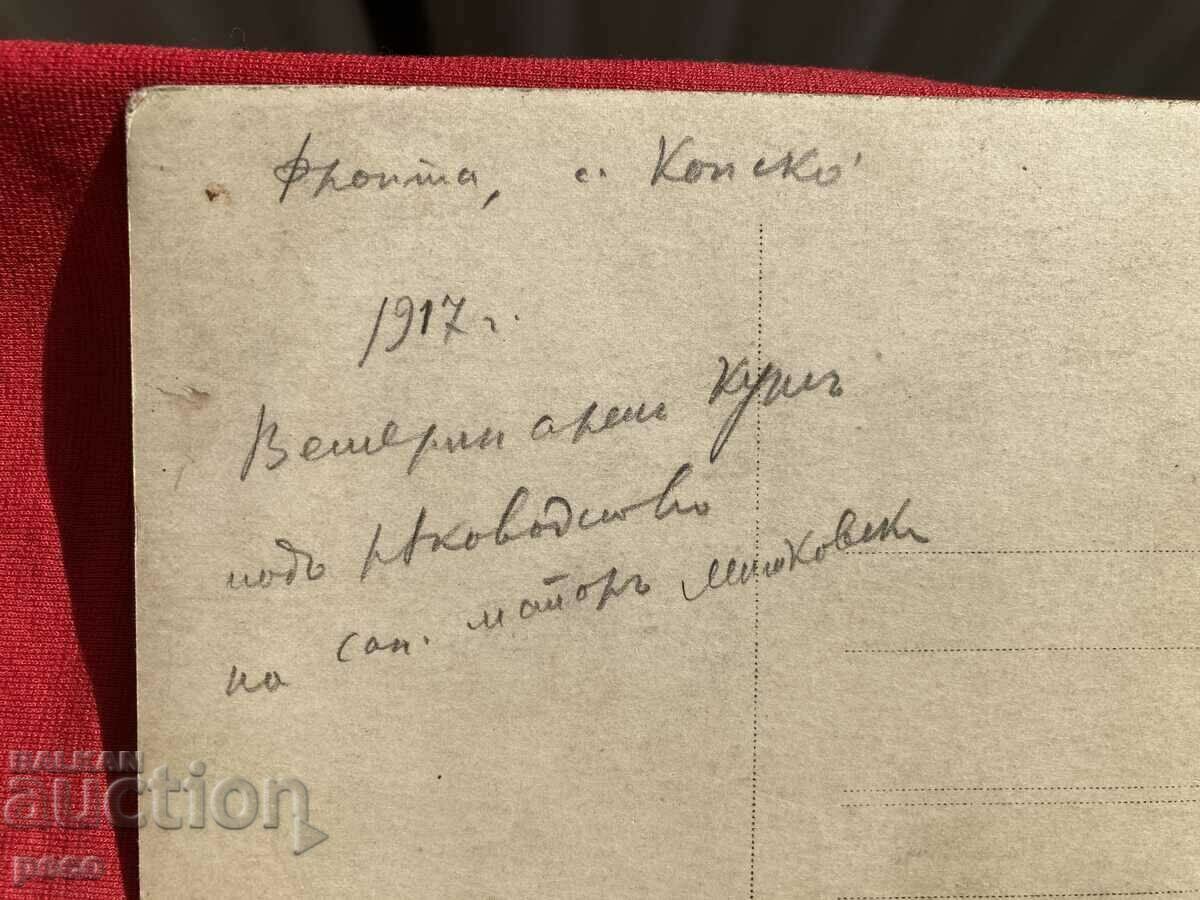 Фронта, с. Конско
1917 г.
Ветеринарен Курсъ
подъ рѫководство
на сан. майоръ Мишковски
BALKAN
auction
poeo